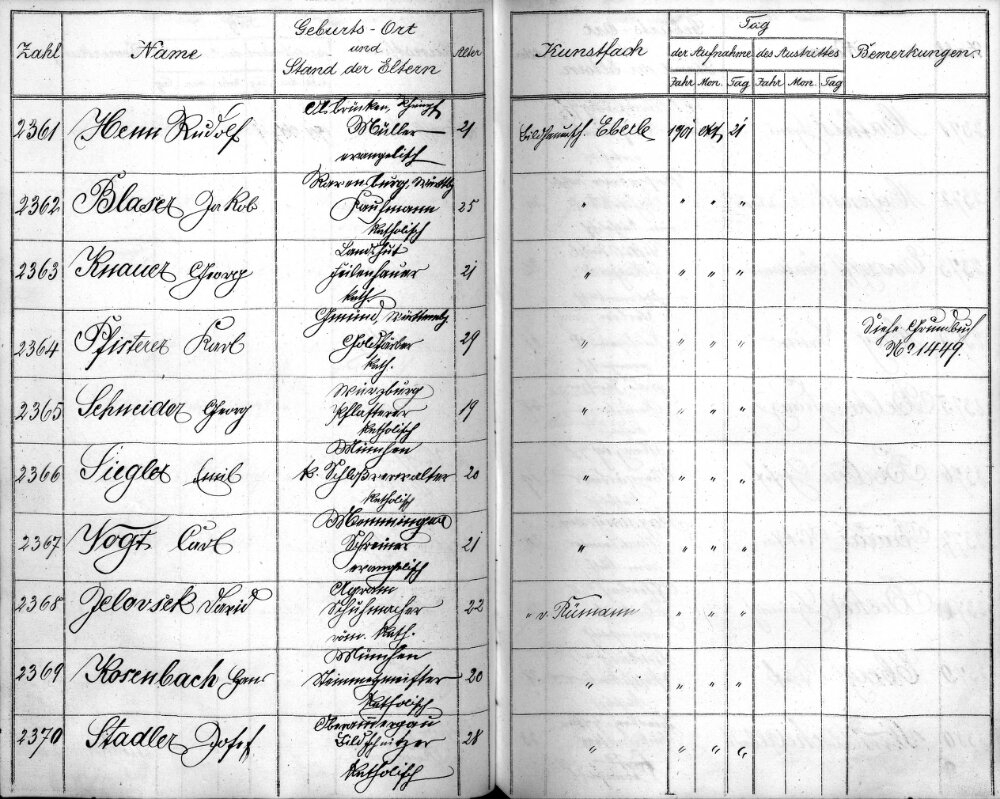 Zahl Name Geburts-Ort und Stand der Eltern Alter Kunstfach Tag der Aufnahme des Austrittes Bemerkungen.
Jahr Mon. Tag Jahr Mon. Tag
2361 Henn Rudolf St. Müller evangelisch 21 Bildhauersch. Eberle 1901 Okt. 21
2362 Blaser Jakob Ravensburg, Württbg Kaufmann katholisch 25 " " " "
2363 Knauer Georg Landshut Feilenhauer kath. 21 " " " "
2364 Pfisterer Karl Gmünd, Württembg Goldarbter kath. 29 " " " " Siehe Grundbuch No 1449.
2365 Schneider Georg Würzburg Pflasterer katholisch 19 " " " "
2366 Siegler Emil München k. Schloßverwalter katholisch 20 " " " "
2367 Vogt Carl Memmingen Schreiner evangelisch 21 " " " "
2368 Jelovsek David Agram Schuhmacher röm. kath. 22 " v. Rümann " " "
2369 Rosenbach Hans München Zimmermeister katholisch 20 " " " "
2370 Stadler Josef Oberammergau Bildschnitzer katholisch 28 " " " "